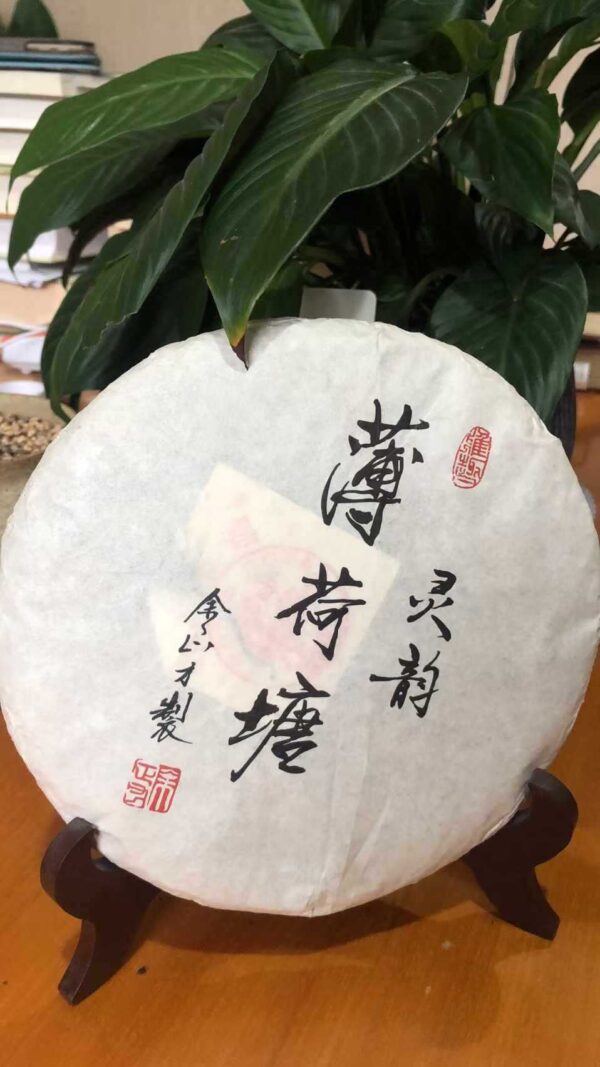 灵韵
薄荷塘
余正才製